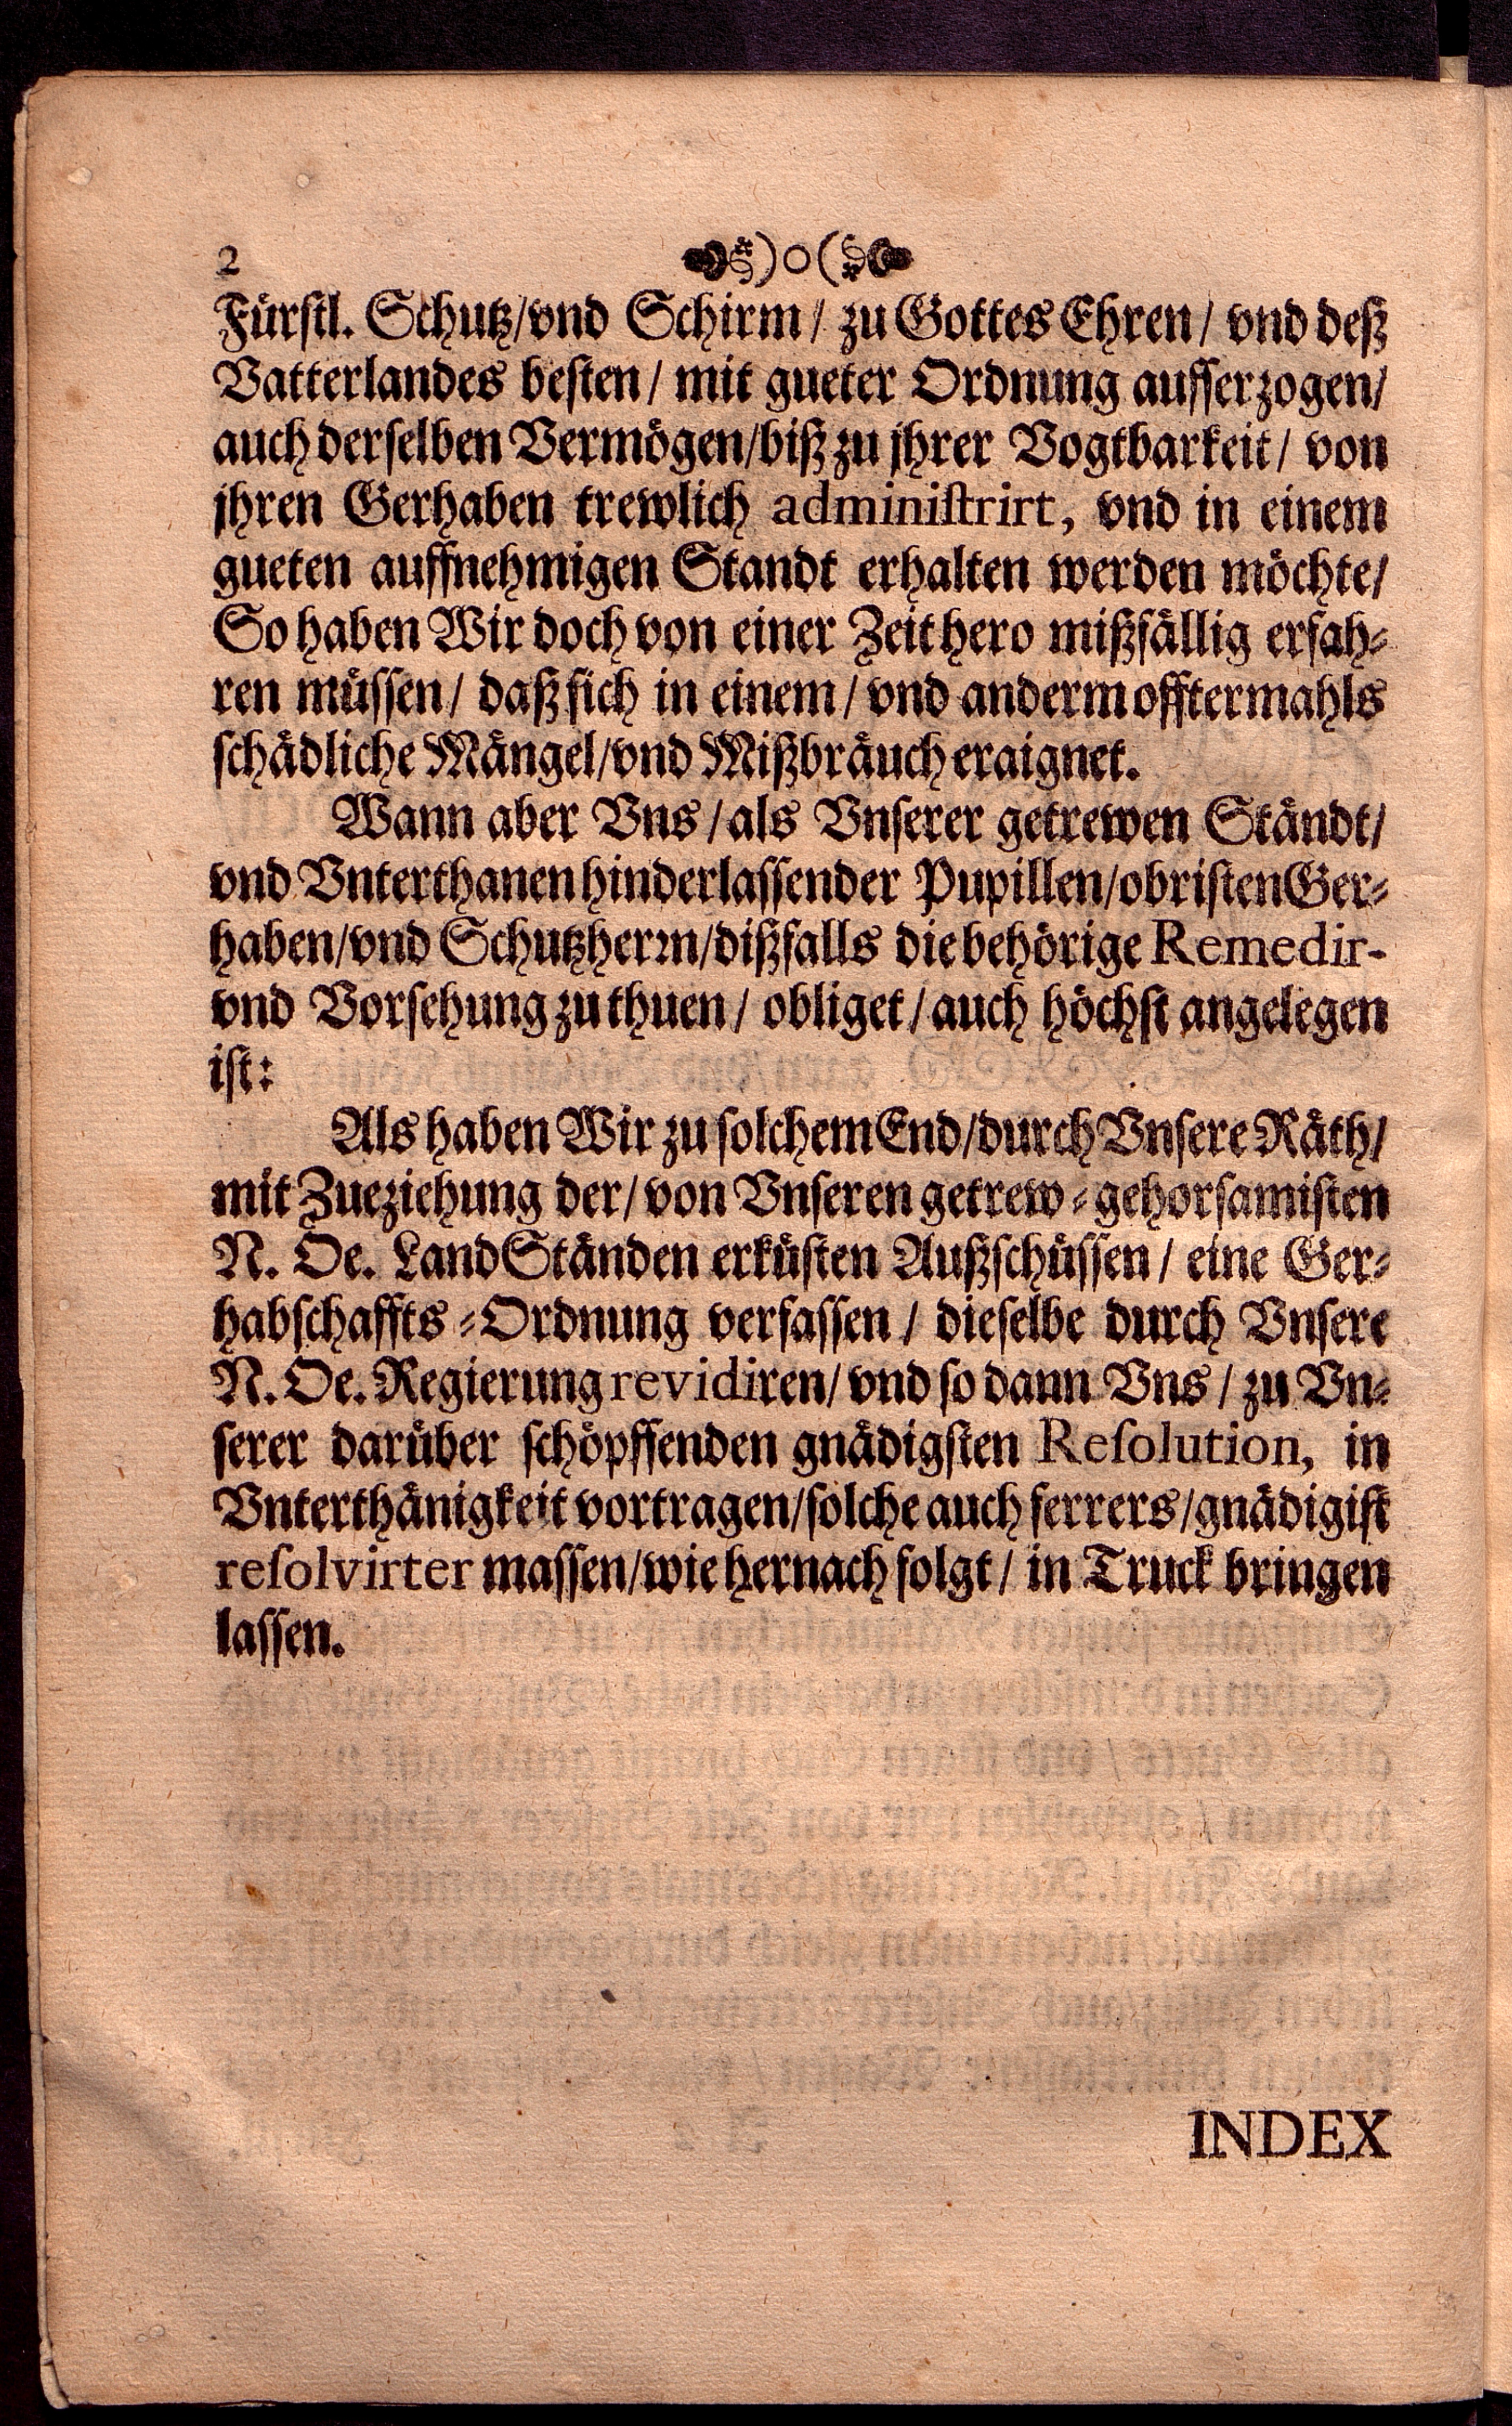 2 )o(
Fürstl. Schutz/vnd Schirm/ zu Gottes Ehren/ vnd deß
Vatterlandes besten/ mit gueter Ordnung aufferzogen/
auch derselben Vermögen/biß zu jhrer Vogtbarkeit/ von
jhren Gerhaben trewlich administrirt, vnd in einem
gueten auffnehmigen Standt erhalten werden möchte/
So haben Wir doch von einer Zeit hero mißfällig erfah-
ren müssen/ daß sich in einem/ vnd anderm offtermahls
schädliche Mängel/vnd Mißbräuch eraignet.
Wann aber Vns/als Vnserer getrewen Ständt/
vnd Vnterthanen hinderlassender Pupillen/obristen Ger-
haben/vnd Schutzherrn/dißfalls die behörige Remedir-
vnd Vorsehung zu thuen/ obliget/auch höchst angelegen
ist:
Als haben Wir zu solchem End/durch Vnsere Räth/
mit Zueziehung der/von Vnseren getrew-gehorsamisten
N. Oe. LandStänden erküsten Außschüssen/ eine Ger-
habschaffts-Ordnung verfassen/ dieselbe durch Vnsere
N. Oe. Regierung revidiren/vnd so dann Vns/ zu Vn-
serer darüber schöpffenden gnädigsten Resolution, in
Vnterthänigkeit vortragen/solche auch ferrers/gnädigist
resolvirter massen/wie hernach folgt/ in Truck bringen
lassen.
INDEX